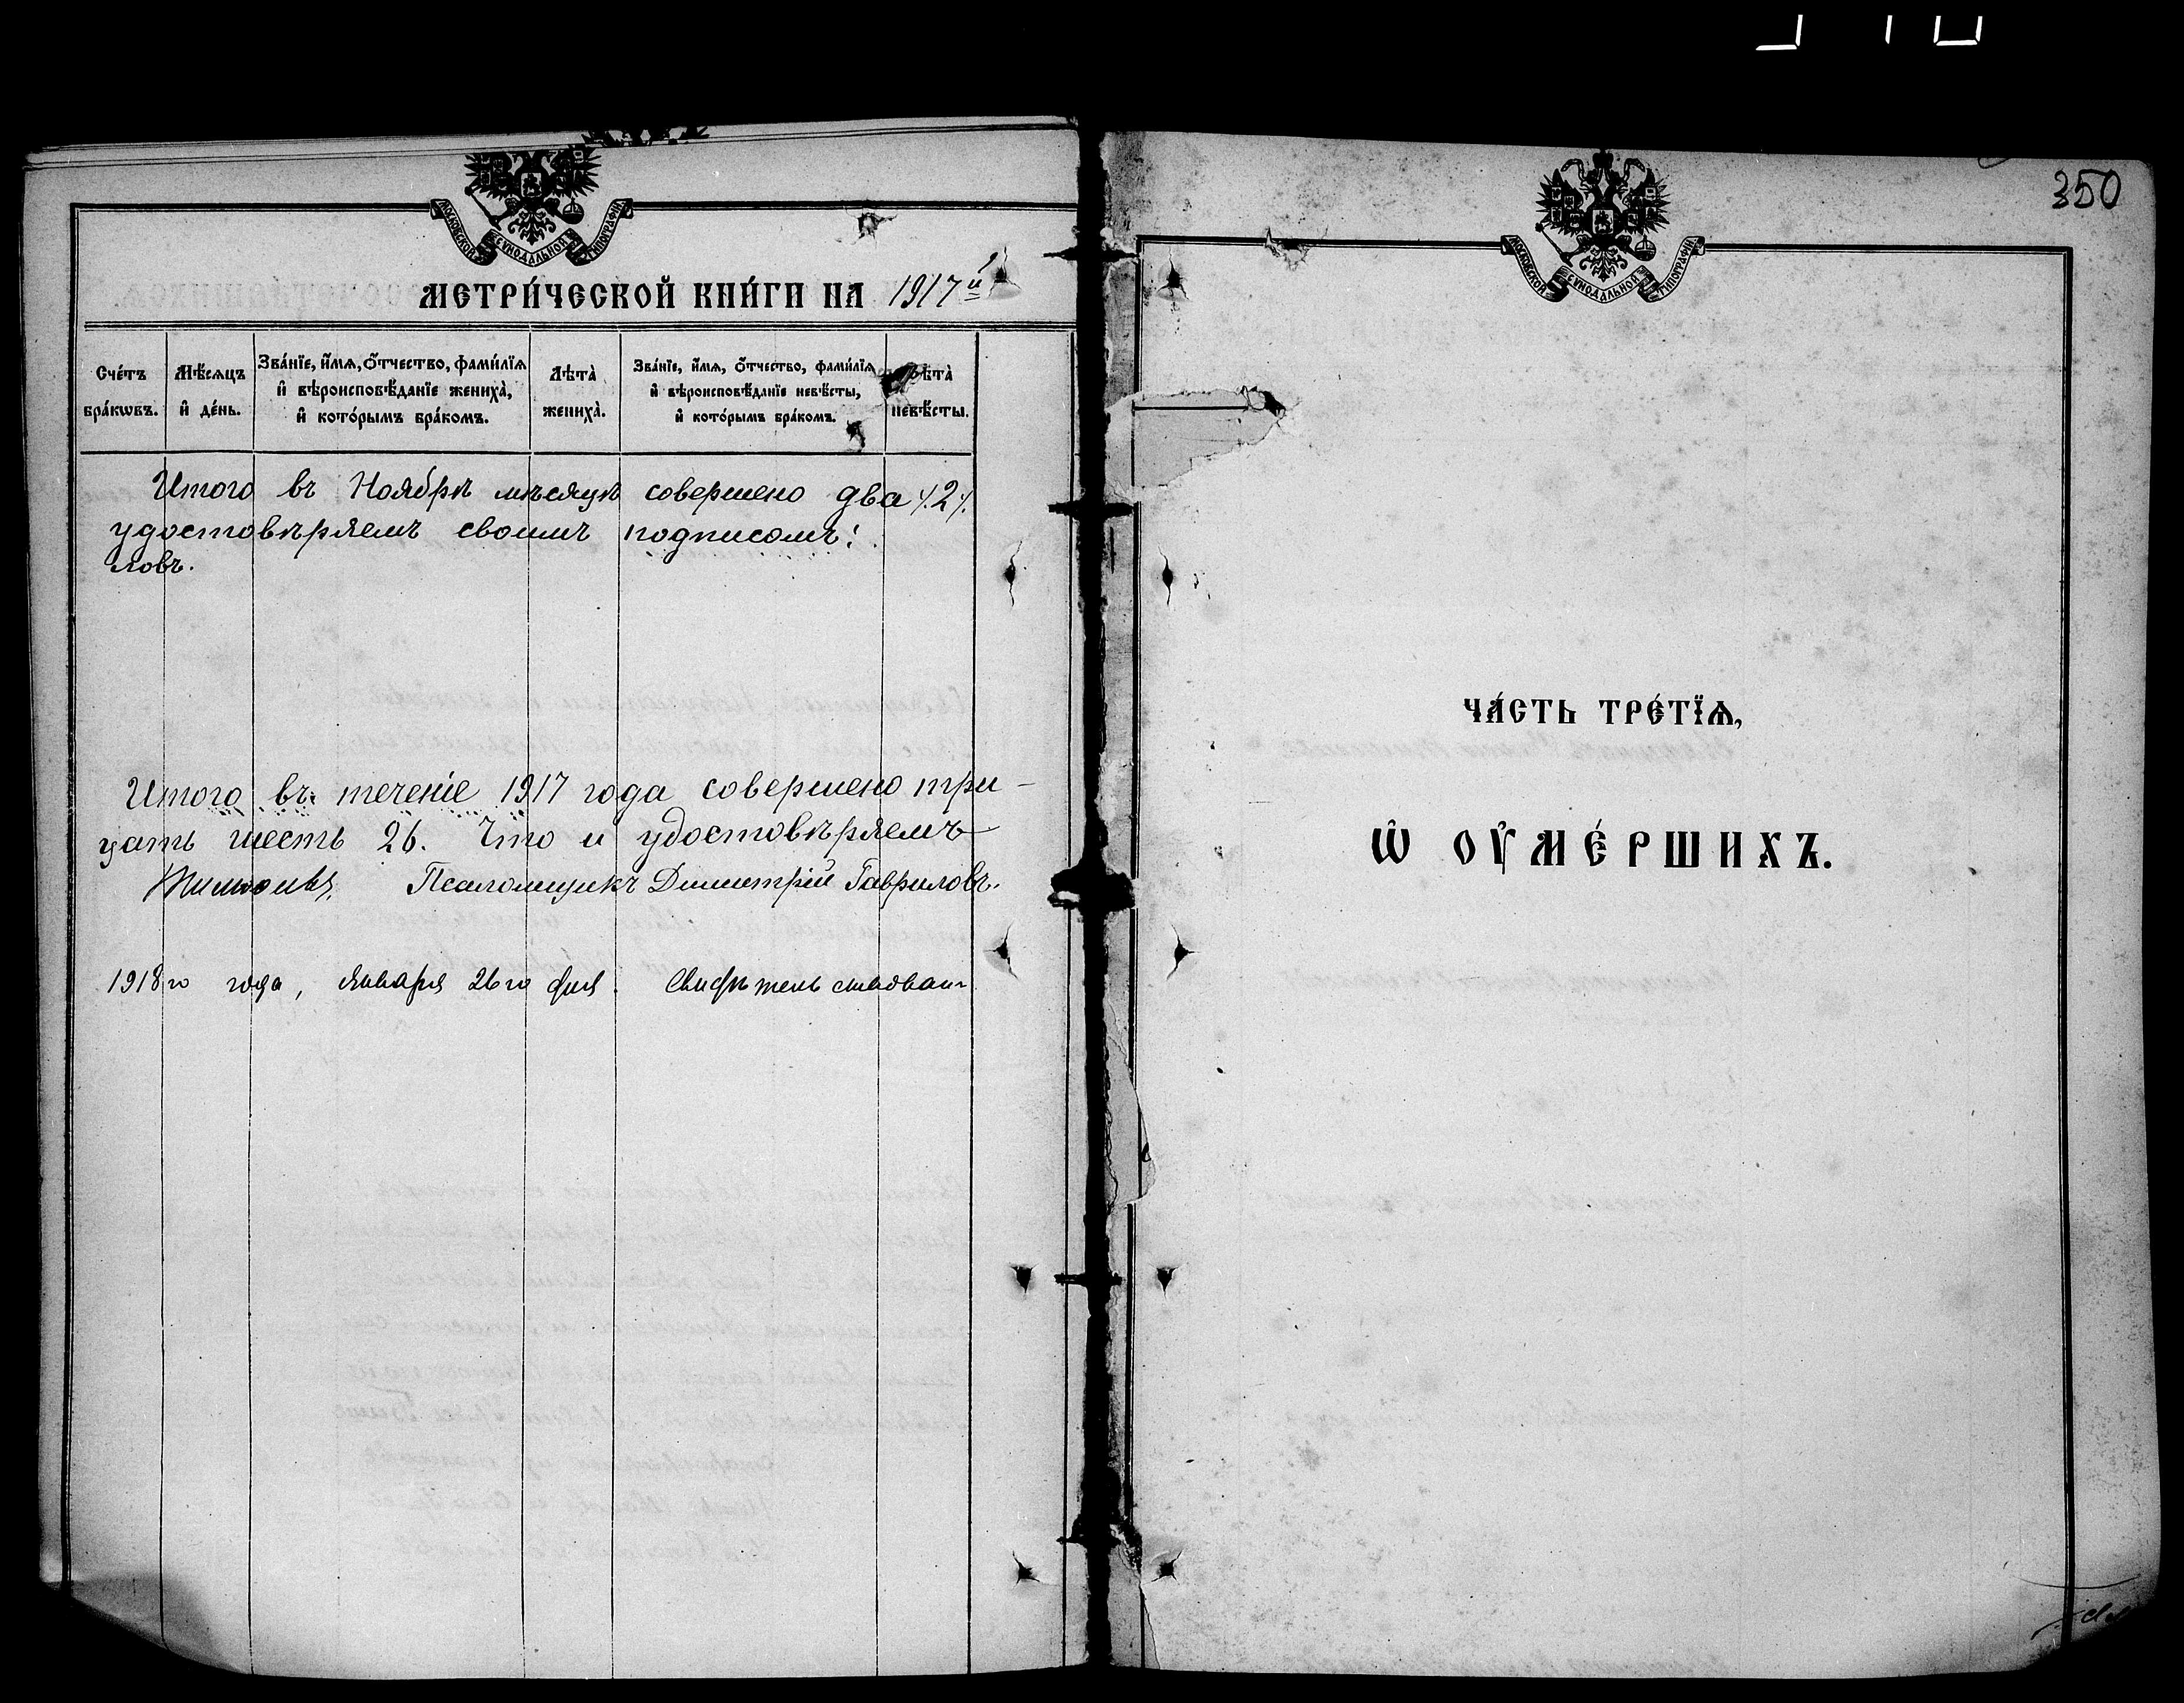 МОСКОВСКОЙ СѴНОДАЛЬНОЙ ТИПОГРАФІИ
МЕТРИ́ЧЕСКОЙ КНИ́ГИ НА 1917 й
Сче́тъ бра́кѡвъ.
Мѣ́сяцъ и҆ де́нь.
Зва́нїе, и҆́мя, ѻ҆́тчество, фами́лїя
и҆ вѣроисповѣ́данїе жениха̀,
и҆ кото́рымъ бра́комъ.
Лѣта̀ жениха̀.
Зва́нїе, и҆́мя, ѻ҆́тчество, фами́лїя
и҆ вѣроисповѣ́данїе невѣ́сты,
и҆ кото́рымъ бра́комъ.
Лѣта̀ невѣ́сты.
Итого въ Ноябрѣ мѣсяцѣ совершено два /.2/.
удостовѣряемъ своимъ подписомъ:
ловъ.
Итого въ теченіе 1917 года совершено три-
цать шесть 26. Что и удостовѣряемъ
Псаломщикъ Димитрій Гавриловъ.
1918 го года, Января 26 го дня.
МОСКОВСКОЙ СѴНОДАЛЬНОЙ ТИПОГРАФІИ
350
ЧА́СТЬ ТРЕ́ТЇѦ,
Ѡ҆ ОУ҆МЕ́РШИХЪ.